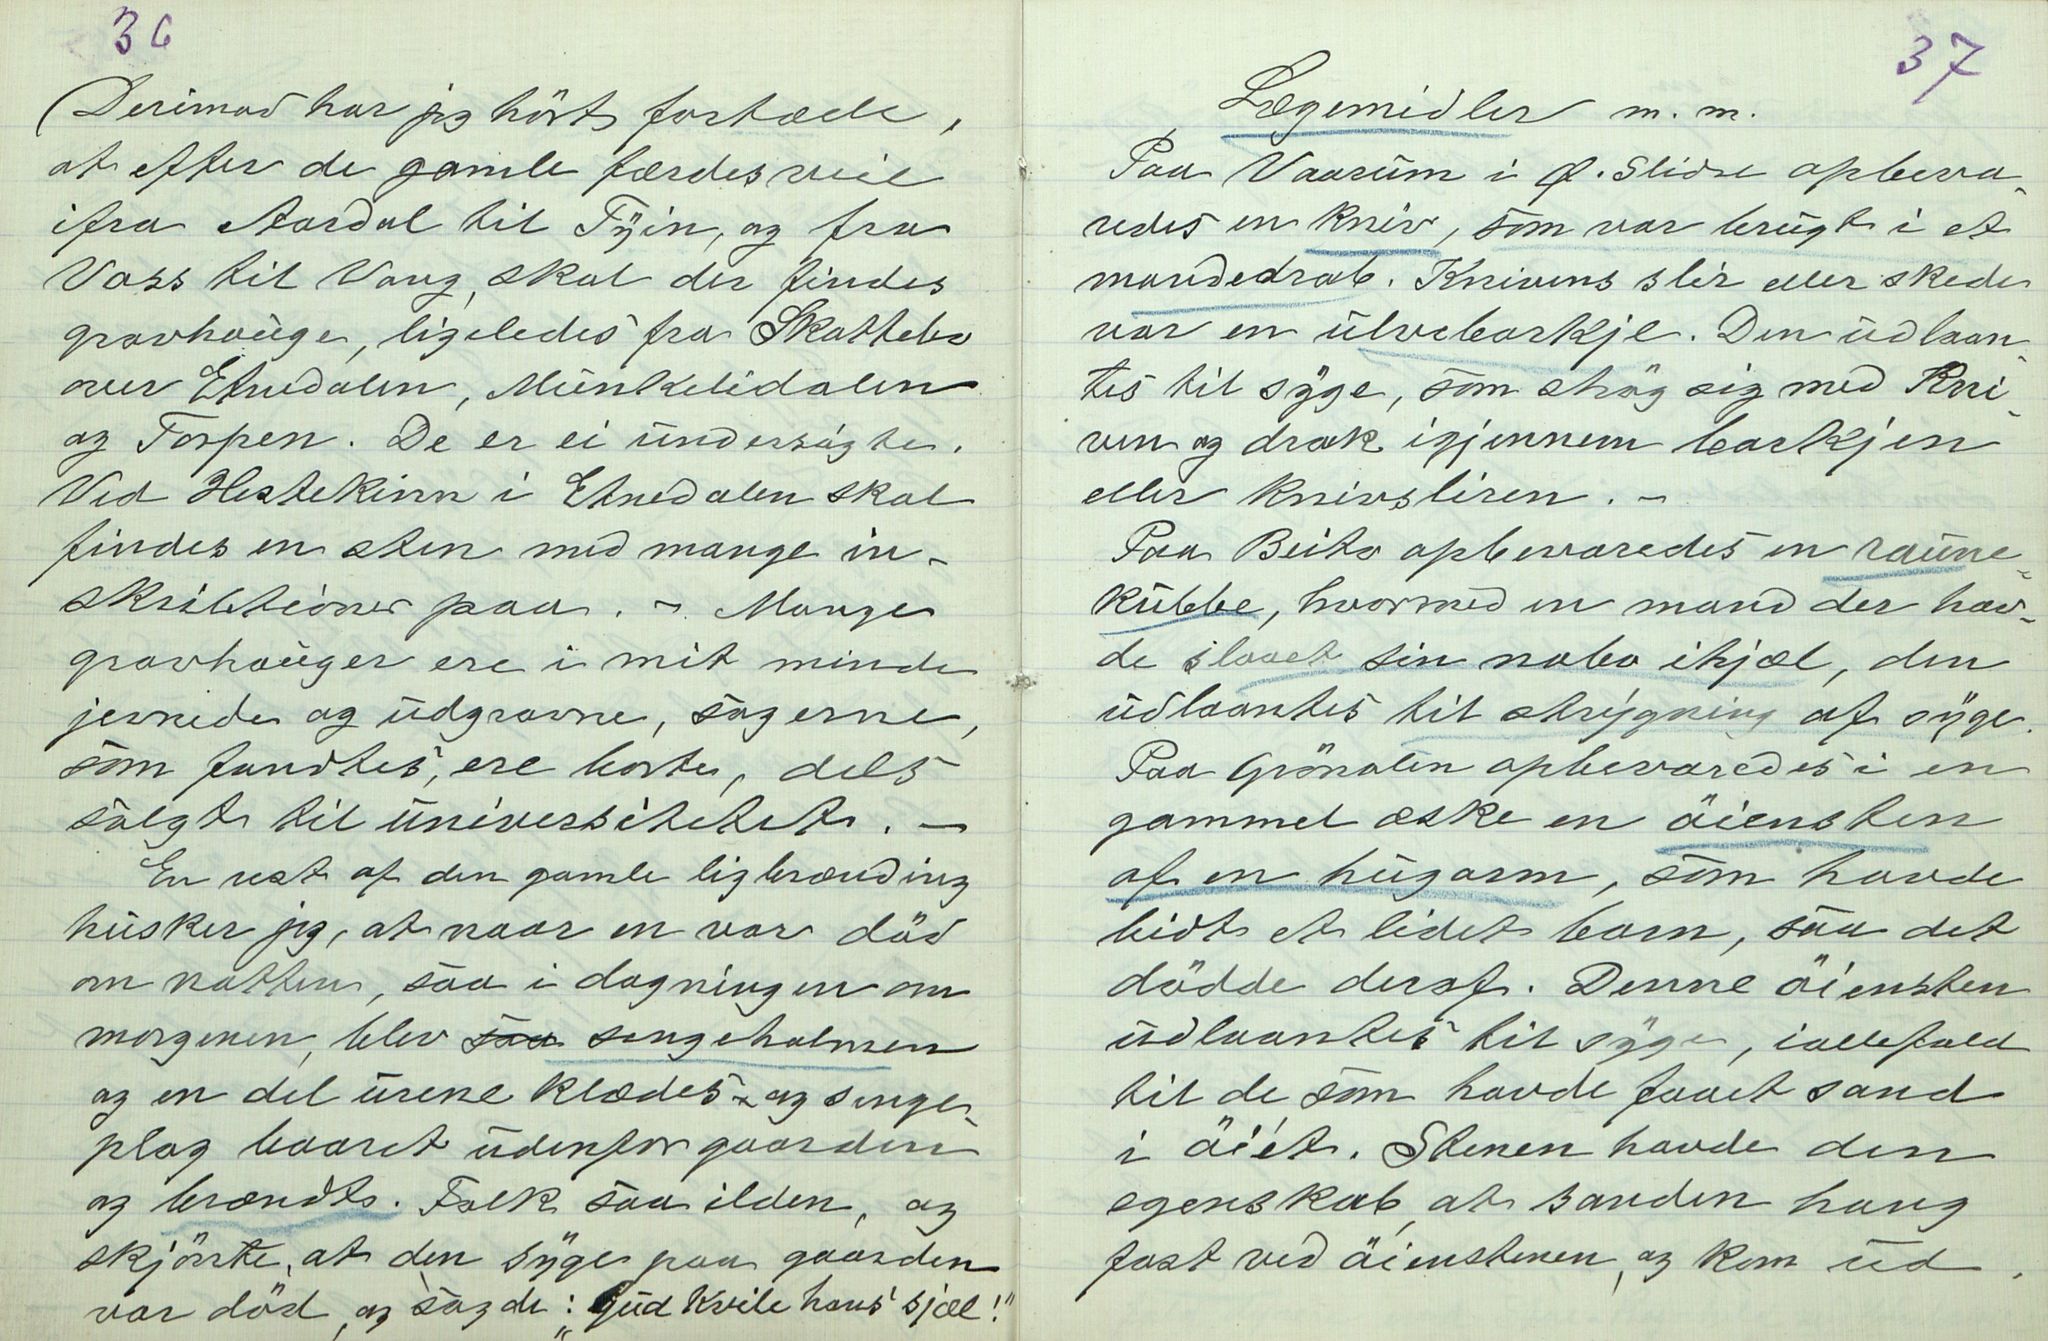 36
(Derimod har jeg hört fortælle,
at efter de gamle færdesveie
ifra Aardal til Tyin, og fra
Voss til Vang, skal der findes
gravhauge, ligeledes fra Skattebo
over Etnedalen, Munkelidalen
og Torpen. De er ei undersögte.
Ved Hestekinn i Etnedalen skal
findes en sten med mange in-
skribtioner paa. - Mange
gravhauger ere i mit minde
jevnede og udgravne, sagerne,
som fandtes, ere borte, dels
solgt til universitetet. -
En rest af den gamle ligbrænding
husker jeg, at naar en var död
om natten, saa i dagningen om
morgenen, blev saa sengehalmen
og en del urene klædes- og senge-
plag baaret udenfor gaarden
og brændt. Folk saa ilden, og
skjönte, at den syge paa gaarden
var död, og sagde: "Gud kvile hans sjæl!"
37
Lægemidler m. m.
Paa Vaarum i Ø. Slidre opbeva-
redes en kniv, som var brugt i et
mandedrab. Knivens slir eller skede
var en ulvebarkje. Den udlaan-
tes til syge, som strög sig med kni-
ven og drak igjennem barkjen
eller knivsliren. -
Paa Beito opbevaredes en raune-
kubbe, hvormed en mand der hav-
de slaaet sin nabo ihjæl, den
udlaantes til strygning af syge.
Paa Grönolin opbevaredes i en
gammel æske en öiensten
af en hugorm, som havde
bidt et lidet barn, saa det
dödde deraf. Denne öiensten
udlaantes til syge, iallefald
til de, som havde faaet sand
i öiet. Stenen havde den
egenskab, at sanden hang
fast ved öienstenen, og kom ud.